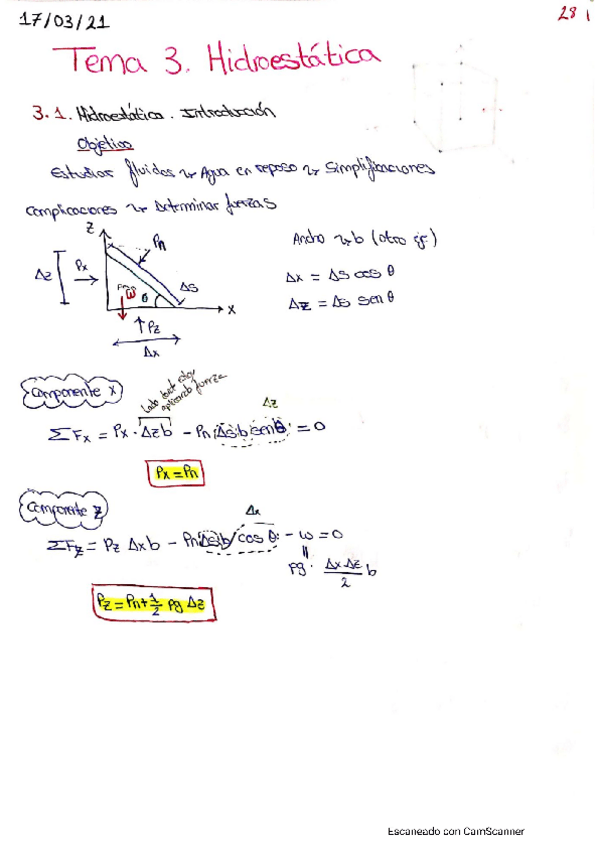 17/03/21
28
Tema 3. Hidroestática
3.1. Hidroestática. Introducción
Objetivo
Estudiar fluidos → Agua en reposo → Simplificaciones
Complicaciones → Determinar fuerzas
Z
Pn
Ancho → b (otro eje)
Δz
Px
ΔS
Δx = ΔS cos θ
W
θ
x
Δz = ΔS sen θ
↑ Pz
Δx
Componente x
aplicando fuerza
Δz
ΣFx = Px · Δz b - Pn ΔS b sen θ = 0
Px = Pn
Componente z
Δx
ΣFz = Pz Δx b - Pn ΔS b cos θ - w = 0
ρg · Δx Δz / 2 b
Pz = Pn + 1/2 ρg Δz
Escaneado con CamScanner